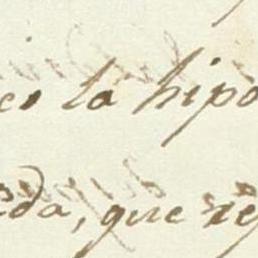 es la hipo
eda, que re